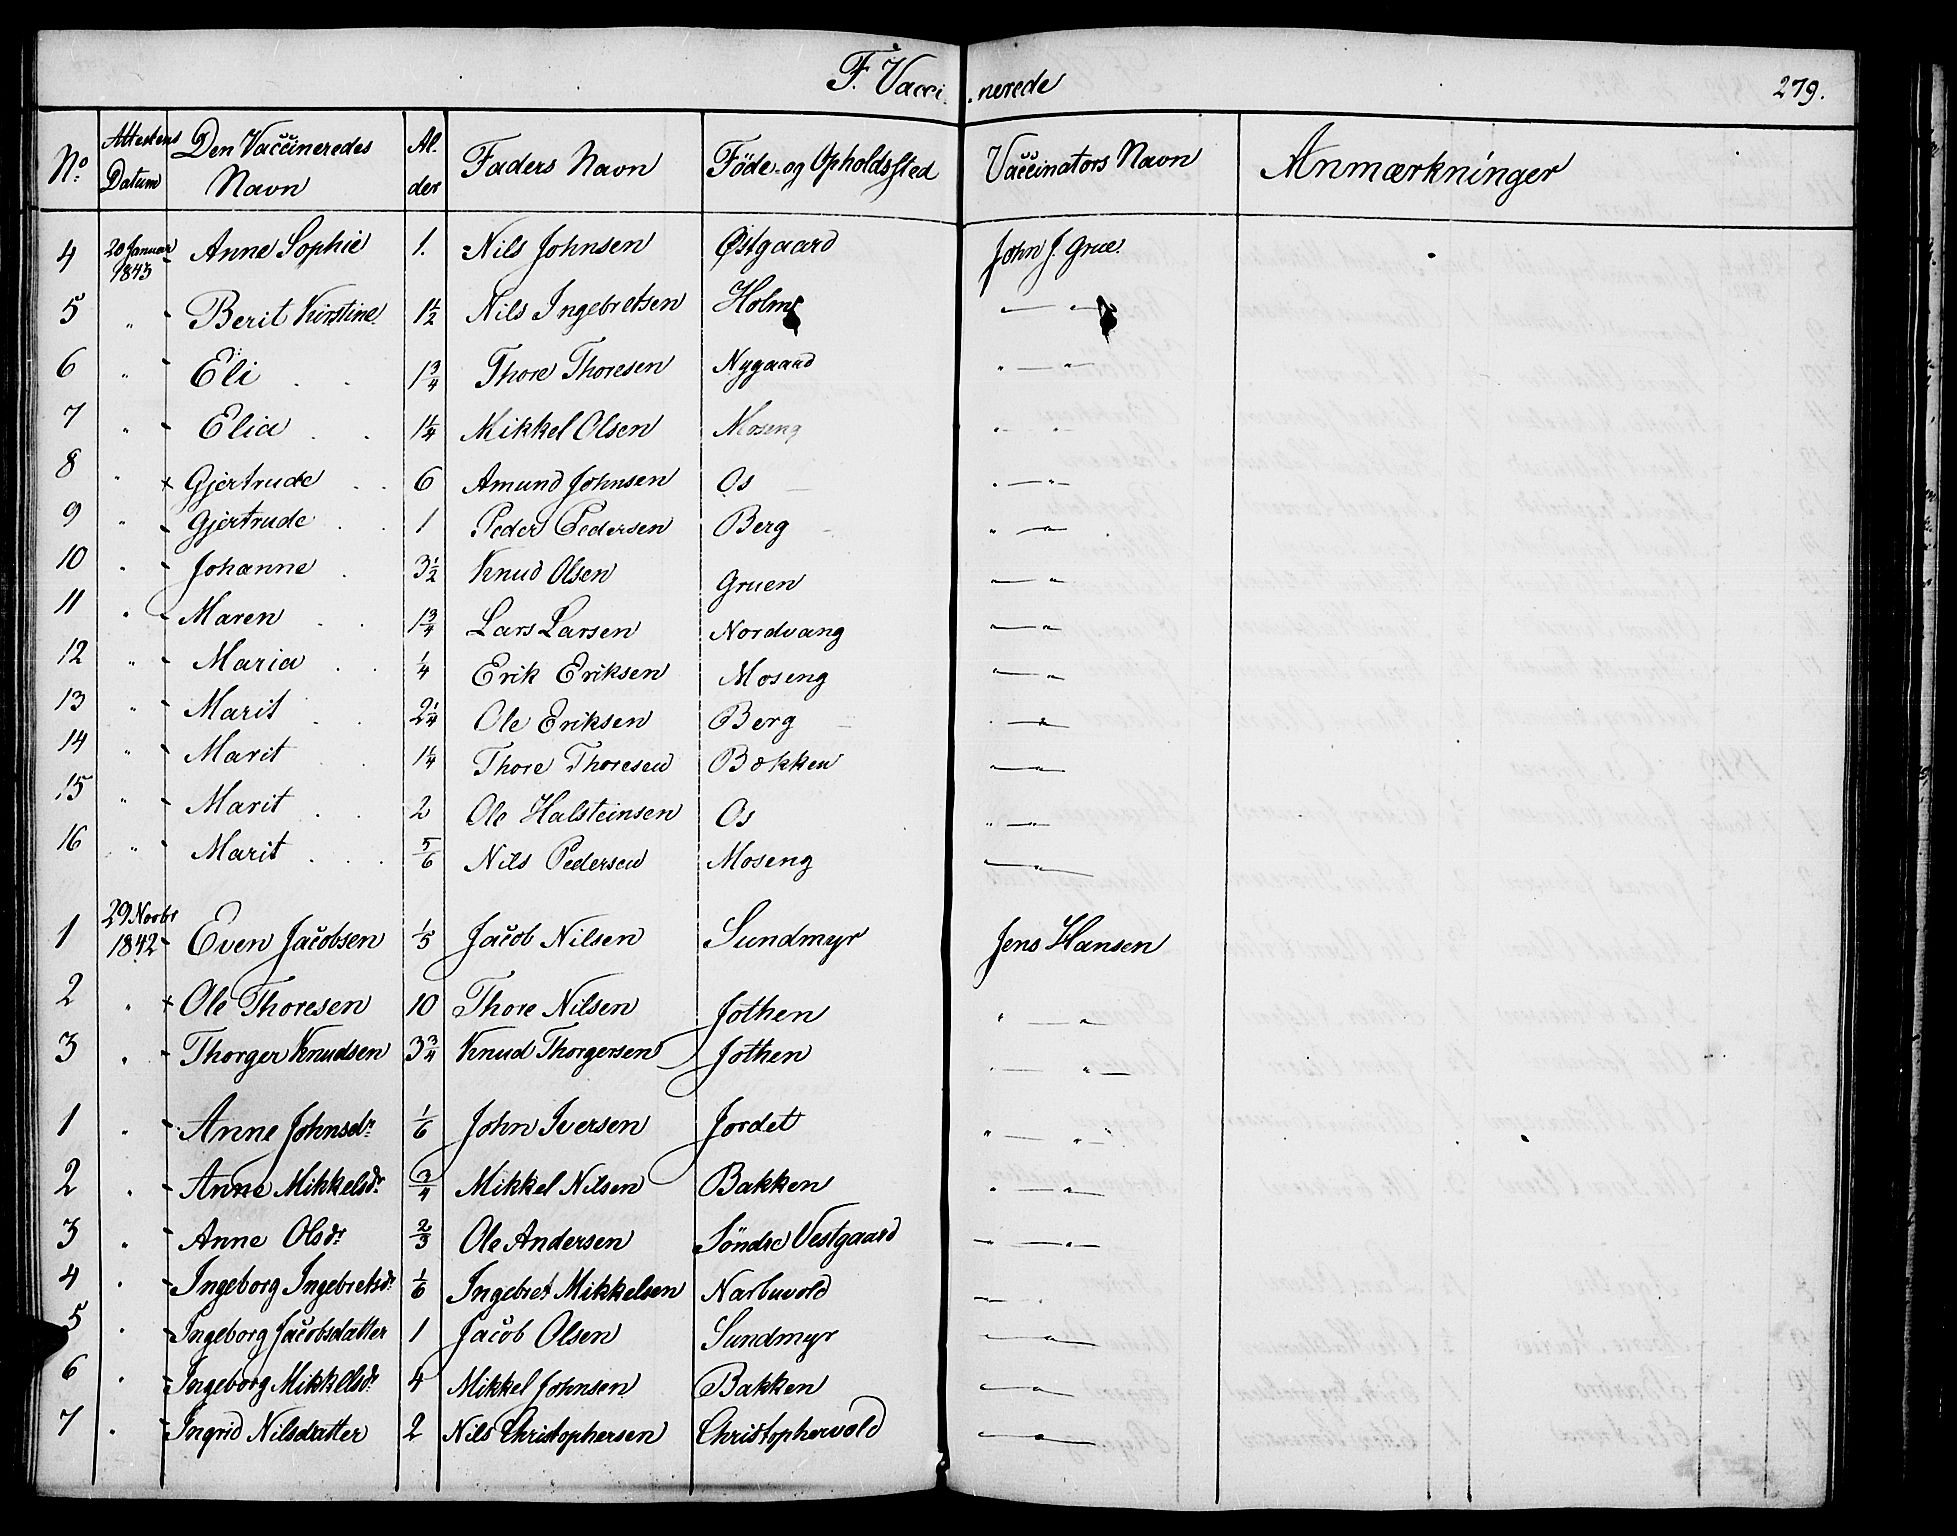 F. Vacci nerede 279.
No. Attestens Datum Den Vaccineredes Navn Al- der Faders Navn Føde- og Opholdssted Vaccinators Navn Anmærkninger
4 20 Januar 1843 - Anne Sophie 1. Nils Johnsen Østgaard John J. Grue.
5 " - Berit Kirstine 1½ Nils Ingebretsen Holm — " —
6 " - Eli 1¾ Thore Thoresen Nygaard " — " —
7 " - Elia 1¼ Mikkel Olsen Moseng " "
8 " × Gjertrude 6 Amund Johnsen Os " — " —
9 " - Gjertrude 1 Peder Pedersen Berg " — " —
10 " - Johanne 3½ Knud Olsen Gruen — " —
11 " - Maren 1¾ Lars Larsen Nordvang — " —
12 " - Maria ¼ Erik Eriksen Moseng " — " —
13 " - Marit 2¼ Ole Eriksen Berg " — " —
14 " - Marit 1¼ Thore Thoresen Bækken — " —
15 " - Marit 2 Ole Halsteinsen Os " — " —
16 " - Marit 5/6 Nils Pedersen Moseng — " —
1 29 Novbr 1842 - Even Jacobsen 1/5 Jacob Nilsen Sundmyr Jens Hansen
2 " × Ole Thoresen 10 Thore Nilsen Jothen " — " —
3 " - Thorger Knudsen 3¾ Knud Thorgersen Jothen " — " —
1 " - Anne Johnsdr. 1/6 John Iversen Jordet " — " —
2 " - Anne Mikkelsdr. ¾ Mikkel Nilsen Bakken " — " —
3 " - Anne Olsdr. 2/3 Ole Andersen Söndre Vestgaard " — " —
4 " - Ingeborg Ingebretsdr. 1/6 Ingebret Mikkelsen Narbuvold — "
5 " - Ingeborg Jacobsdatter 1 Jacob Olsen Sundmyr — " —
6 " - Ingeborg Mikkelsdr. 4 Mikkel Johnsen Bakken — " —
7 " - Ingrid Nilsdatter 2 Nils Christophersen Christophervold — " —